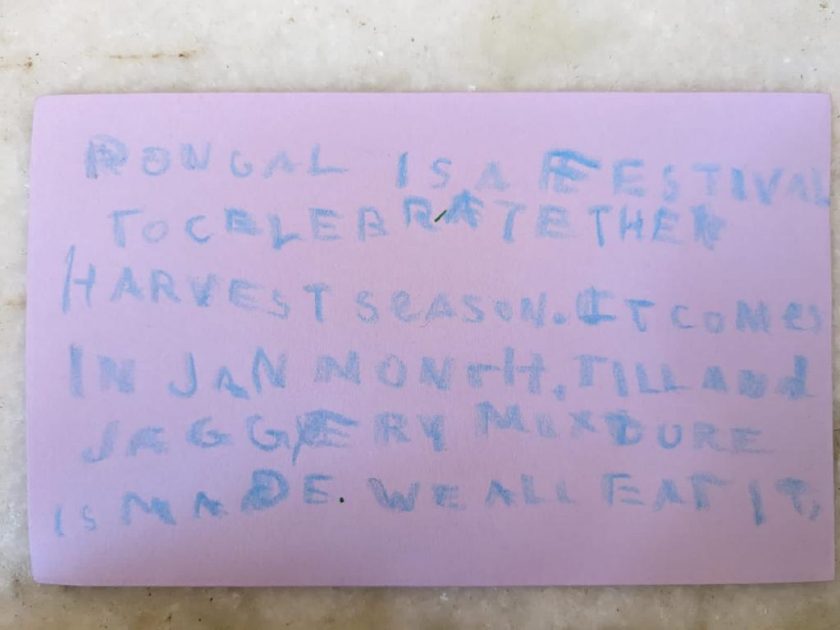 PONGAL IS A FESTIVAL
TO CELEBRATE THE
HARVEST SEASON. IT COMES
IN JAN MONTH. TILL AND
JAGGERY MUXDURE
IS MADE. WE ALL EAT IT,